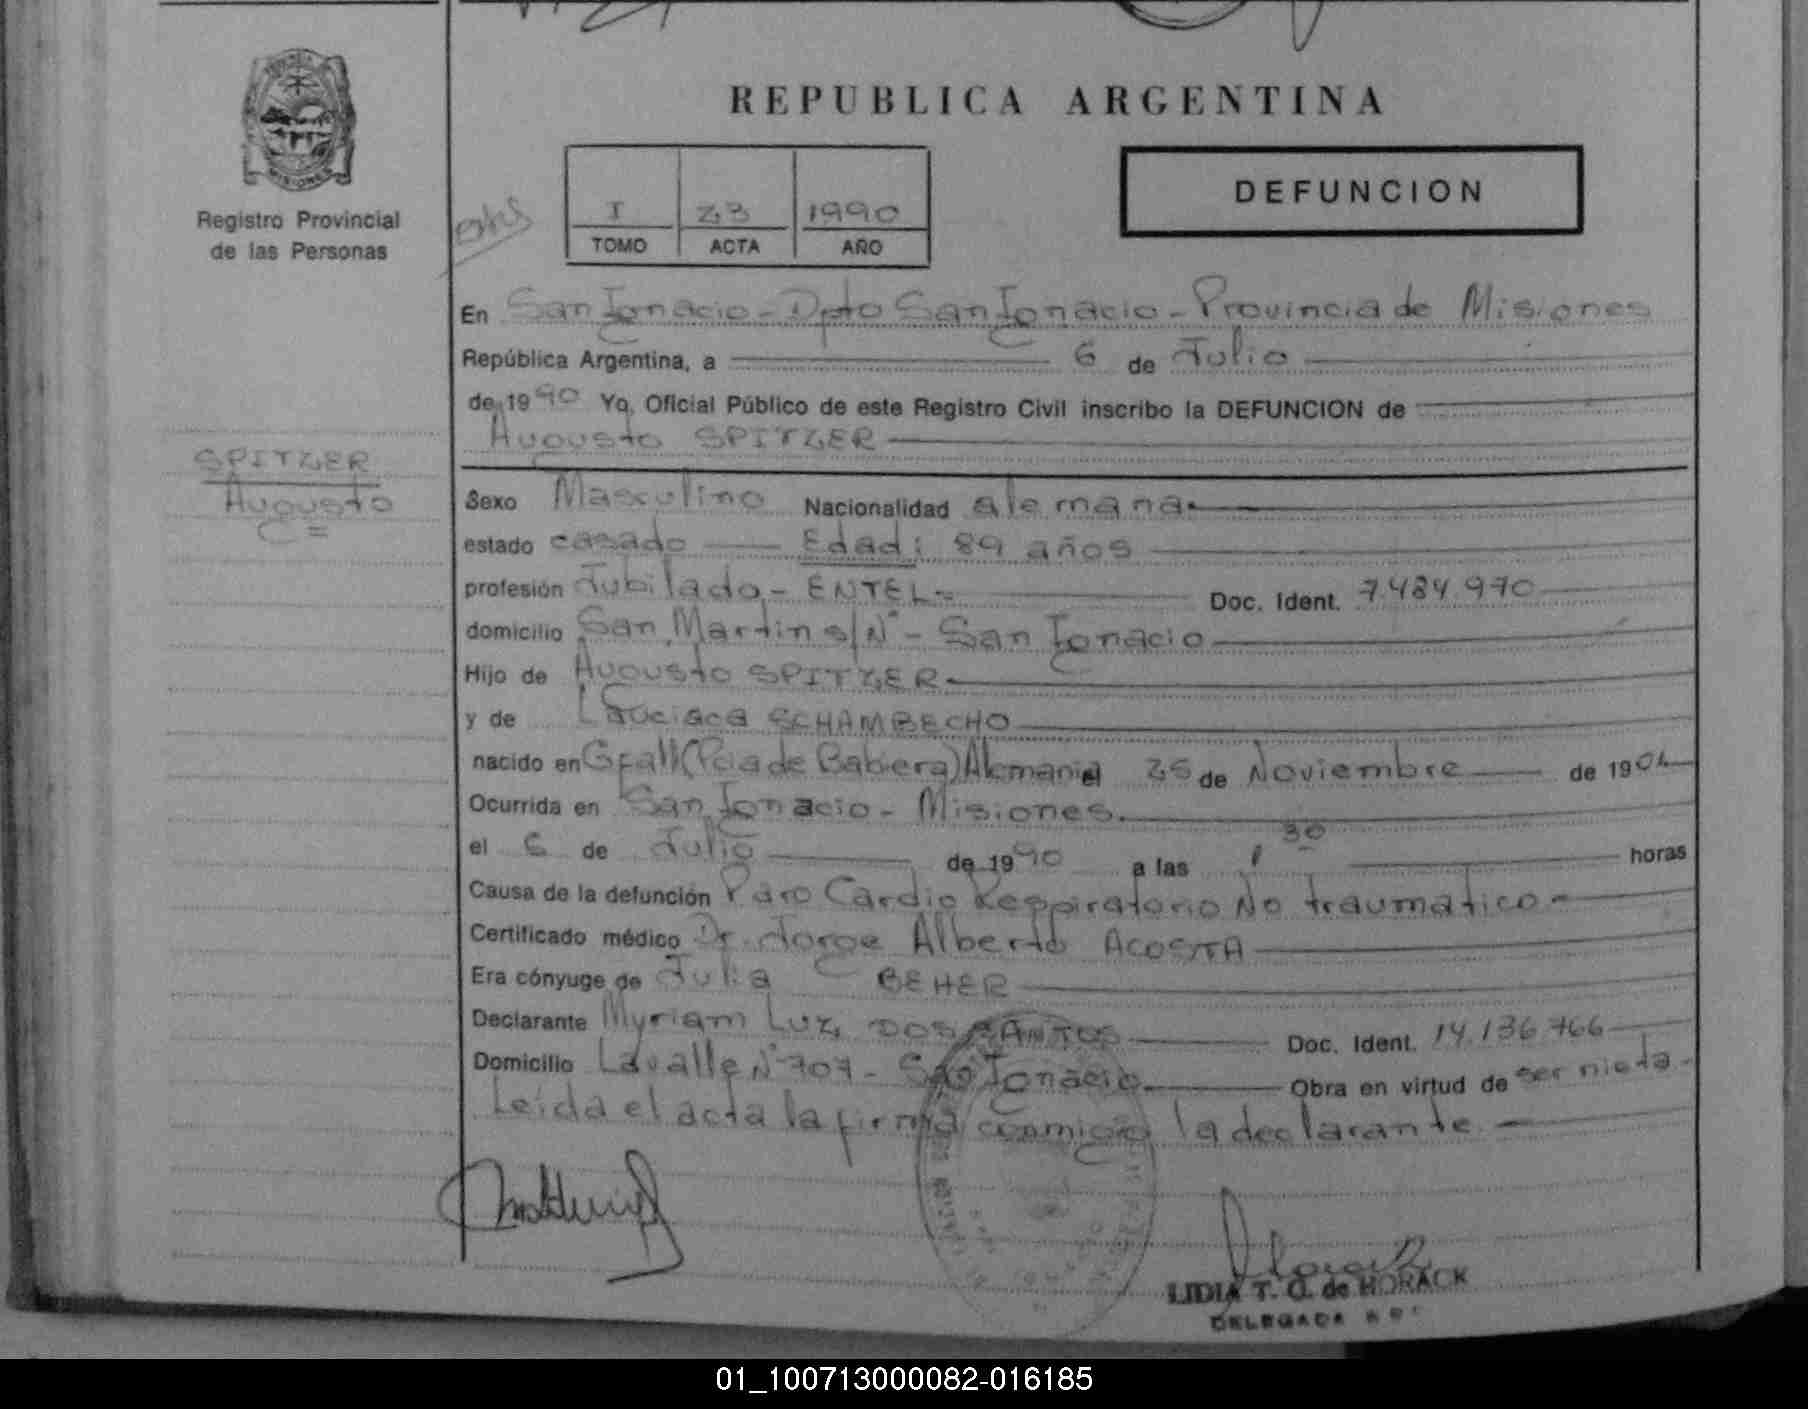 REPUBLICA ARGENTINA
Registro Provincial
de las Personas
MISIONES
I 23 1990
TOMO ACTA AÑO
DEFUNCION
En San Ignacio - Dpto San Ignacio - Provincia de Misiones
República Argentina, a 6 de Julio
de 1990 Yo, Oficial Público de este Registro Civil inscribo la DEFUNCION de
Augusto SPITZER
SPITZER
Augusto
Sexo Masculino Nacionalidad alemana.
estado casado Edad: 89 años
profesión Jubilado - ENTEL Doc. Ident. 7.484.970
domicilio San Martin s/Nº - San Ignacio
Hijo de Augusto SPITZER
y de SCHAMBECHO
nacido en Gfall (Pcia de Babiera) Alemania el 25 de Noviembre de 190
Ocurrida en San Ignacio - Misiones.
el 6 de Julio de 1990 a las 1 30 horas
Causa de la defunción Paro Cardio Respiratorio No traumatico -
Certificado médico Dr. Jorge Alberto ACOSTA
Era cónyuge de Julia BEHER
Declarante Myriam Luz DOS SANTOS Doc. Ident. 14.136.766
Domicilio Lavalle Nº 707 - San Ignacio. Obra en virtud de ser nieta -
Leida el acta la firma conmigo la declarante. -
LIDIA T. O. de HORACK
DELEGADA
01_100713000082-016185